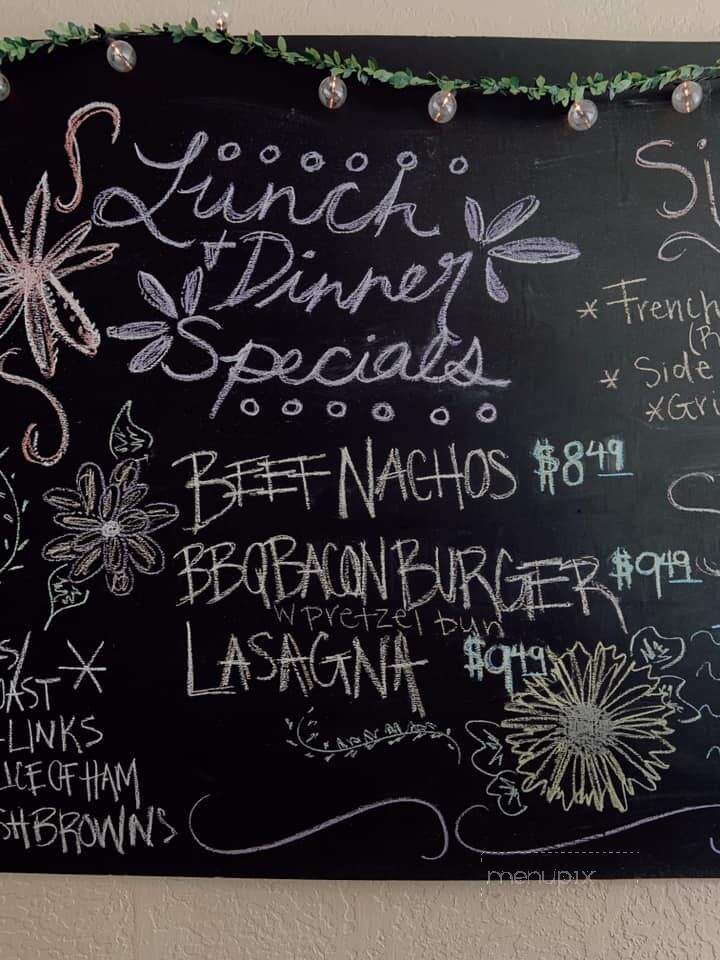 Lunch
+ Dinner
Specials
BEEF NACHOS $8.49
BBQ BACON BURGER $9.49
w pretzel bun
LASAGNA $9.49
*
OAST
LINKS
ICE OF HAM
SHBROWNS
Si
* French
(R
* Side
* Gri
menupix